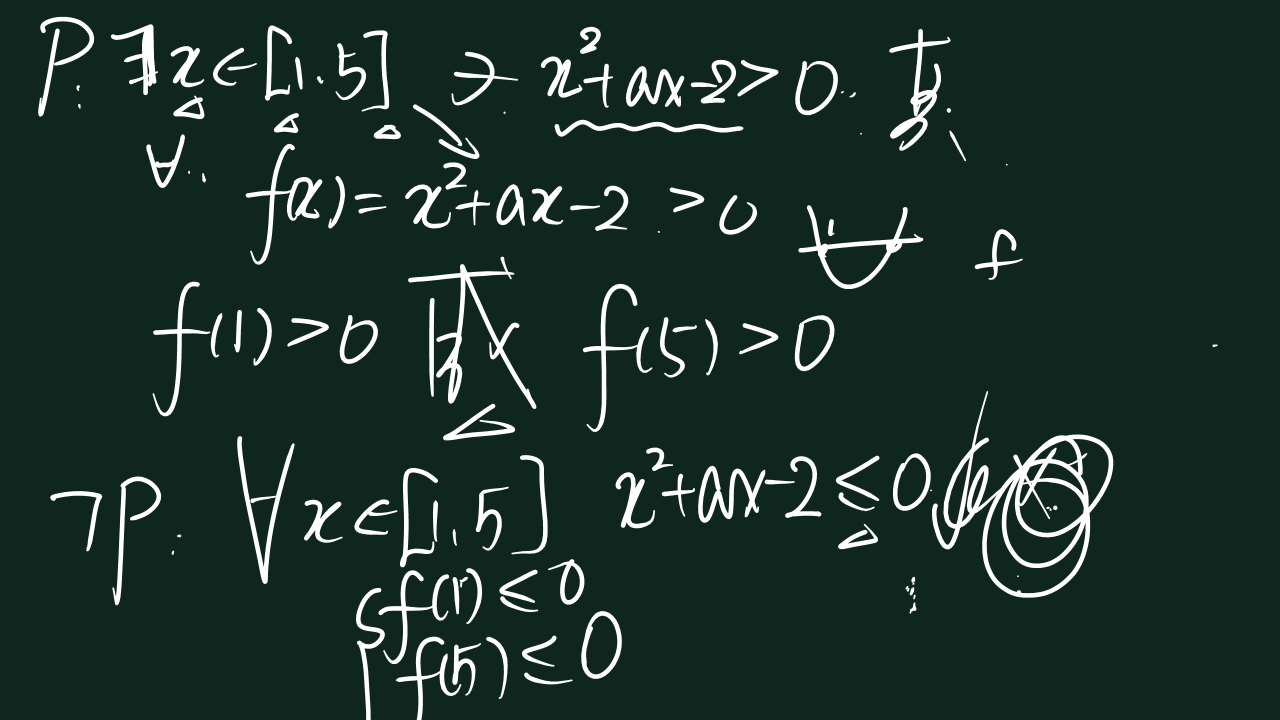 P: ∃x∈[1.5] ∋ x²+ax-2>0 真.
∀..
f(x)=x²+ax-2 >0 f
f(1)>0 f(5)>0
¬P: ∀x∈[1,5] x²+ax-2≤0
{f(1)≤0
f(5)≤0